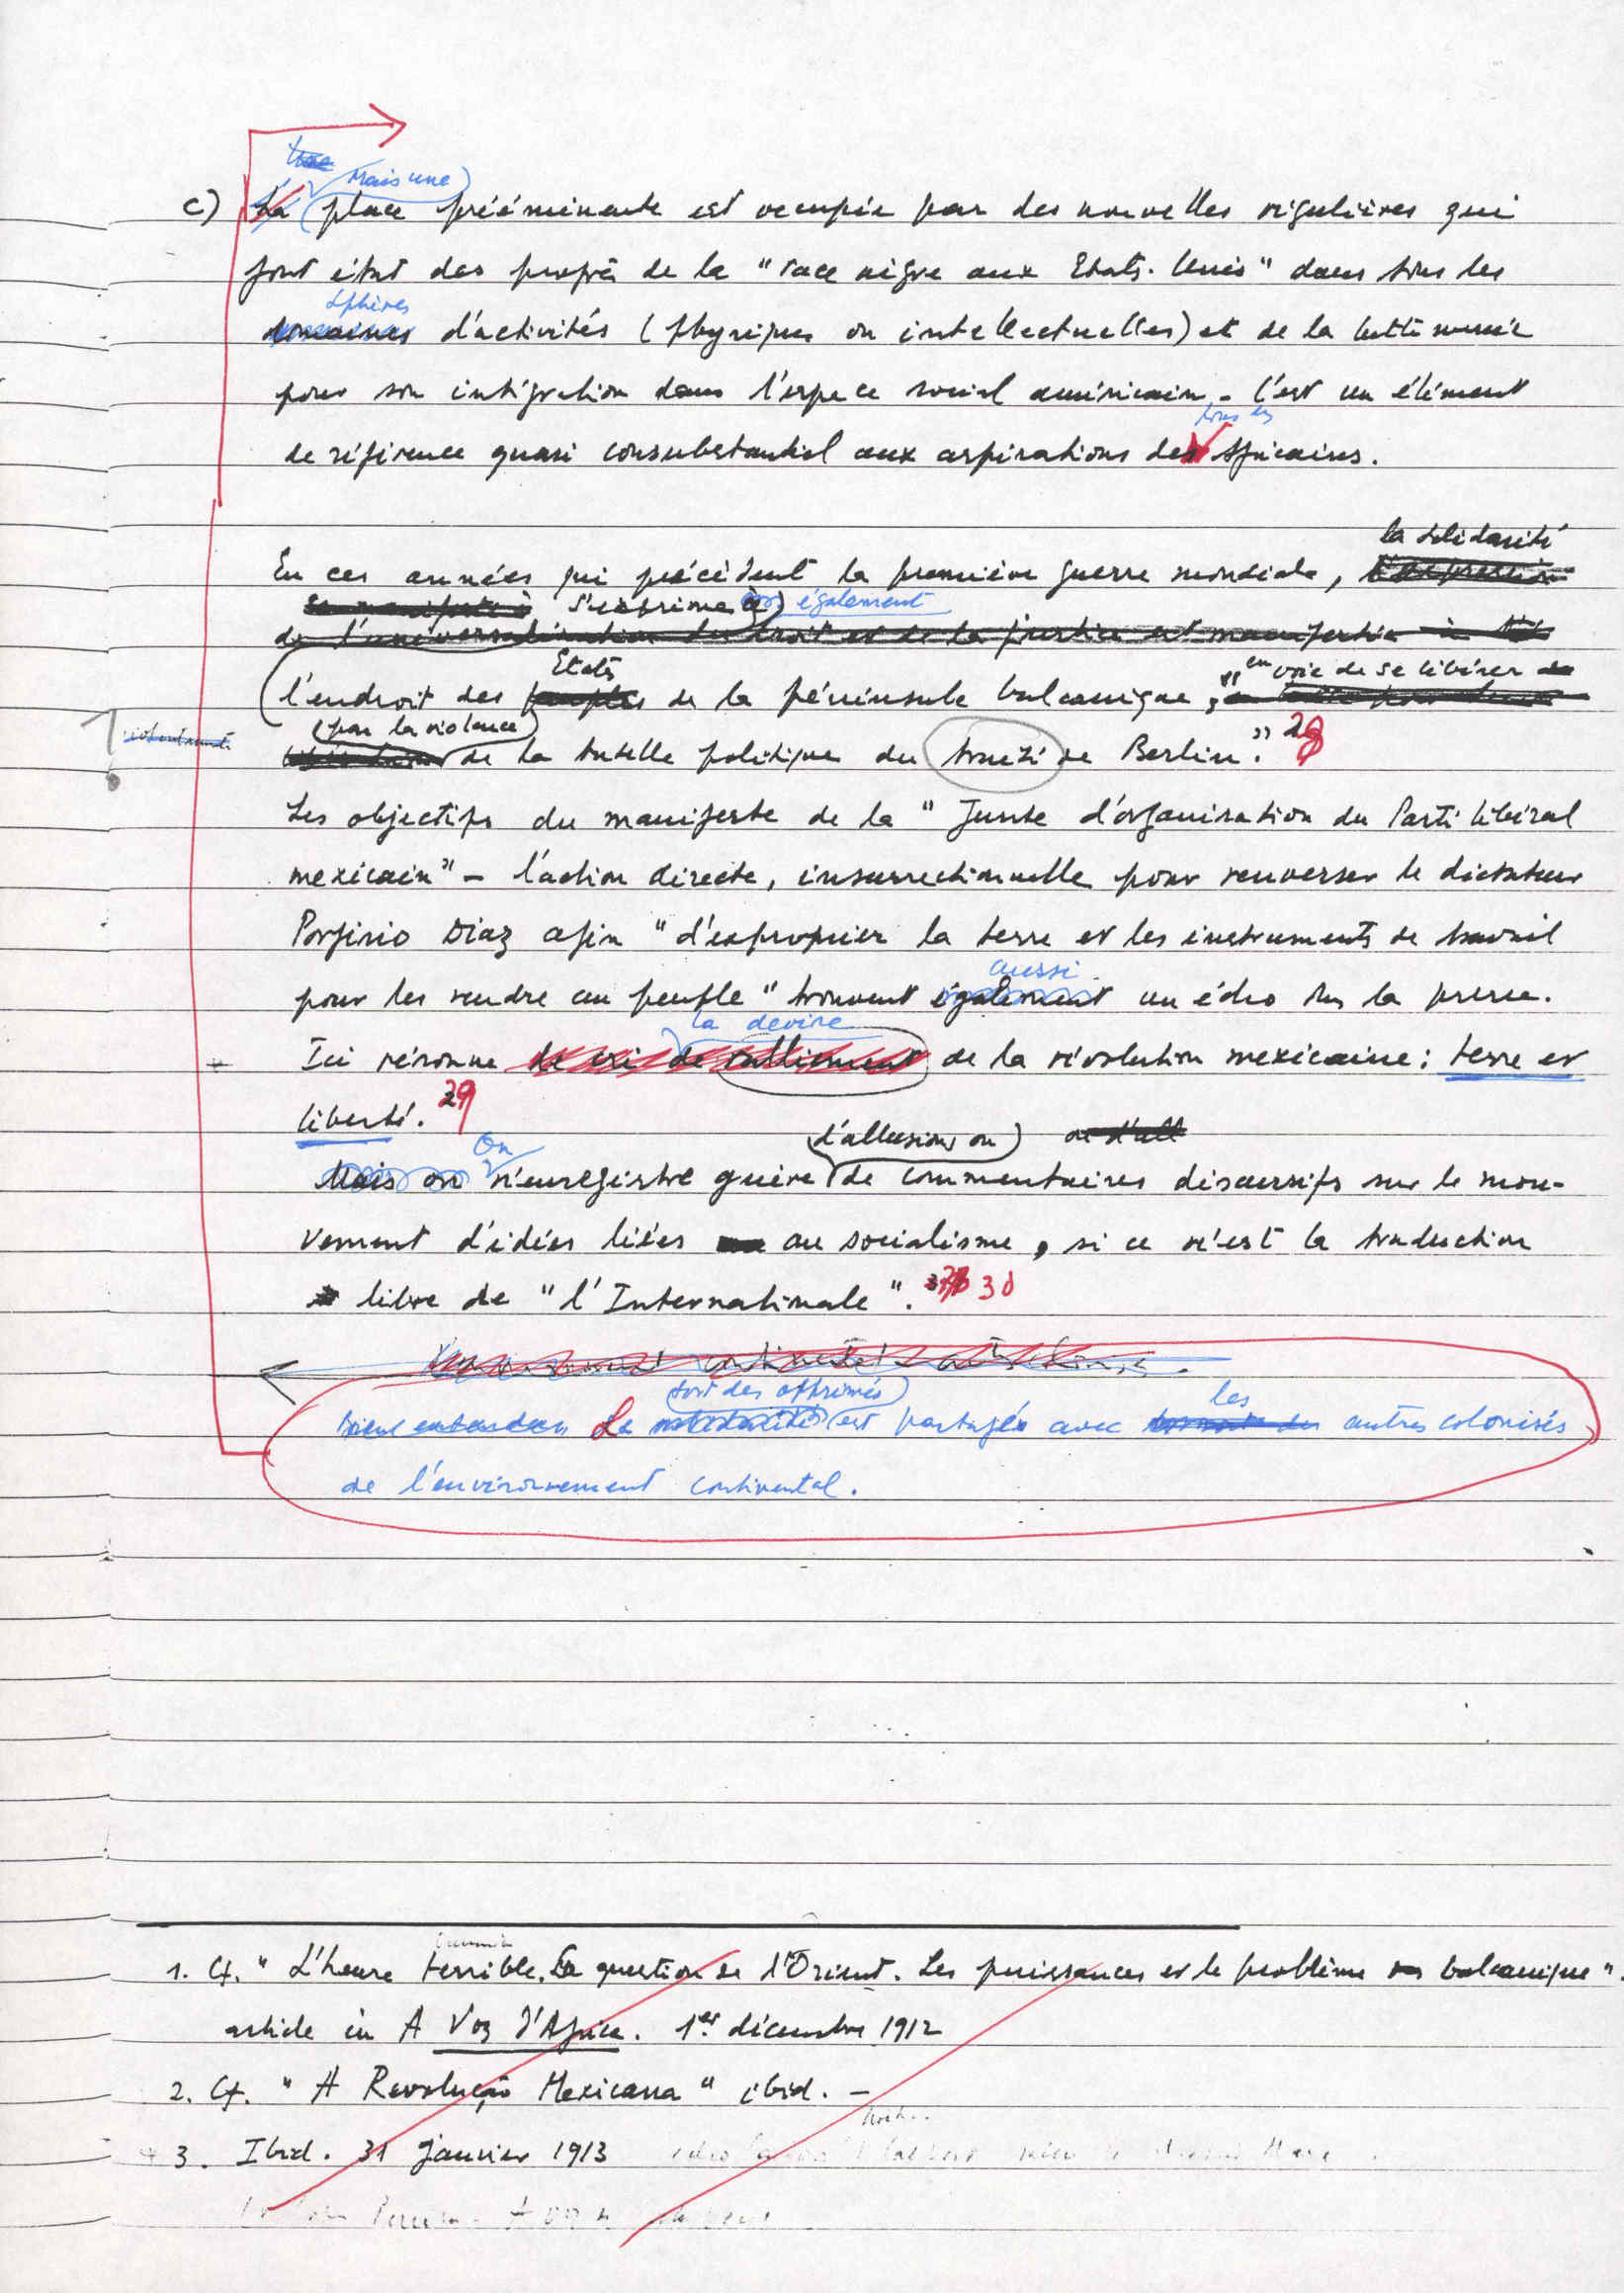 Mais une
c) La place prééminente est occupée par des nouvelles régulières qui
font état des progrès de la "race nègre aux Etats-Unis" dans tous les
sphères
domaines d'activités (physiques ou intellectuelles) et de la lutte menée
pour son intégration dans l'espace social américain. - C'est un élément
tous les
de référence quasi consubstantiel aux aspirations des Africains.
la solidarité
En ces années qui précèdent la première guerre mondiale, l'expression
se manifeste à s'exprime à également
de l'universalisation du droit et de la justice est manifestée à
Etats en voie de se libérer de
l'endroit des peuples de la péninsule balcanique, "
(par la violence)
de la tutelle politique du traité de Berlin." 28
Les objectifs du manifeste de la "Junte d'organisation du Parti libéral
mexicain" - l'action directe, insurrectionnelle pour renverser le dictateur
Porfirio Diaz afin "d'exproprier la terre et les instruments de travail
aussi
pour les rendre au peuple" trouvent également un écho dans la presse.
la devise
Ici résonne le cri de ralliement de la révolution mexicaine : terre et
liberté. 29
On (d'allusions ou) ou d'all
Mais on n'enregistre guère de commentaires discursifs sur le mou-
vement d'idées liées au socialisme, si ce n'est la traduction
libre de "l'Internationale". 30
sort des opprimés les
bien entendu Le est partagé avec autres colonisés
de l'environnement continental.
1. Cf. "L'heure terrible. La question de l'Orient. Les puissances et le problème balcanique".
article in A Voz d'Africa. 1er décembre 1912
2. Cf. "A Revolução Mexicana" ibid. -
3. Ibid. 31 janvier 1913